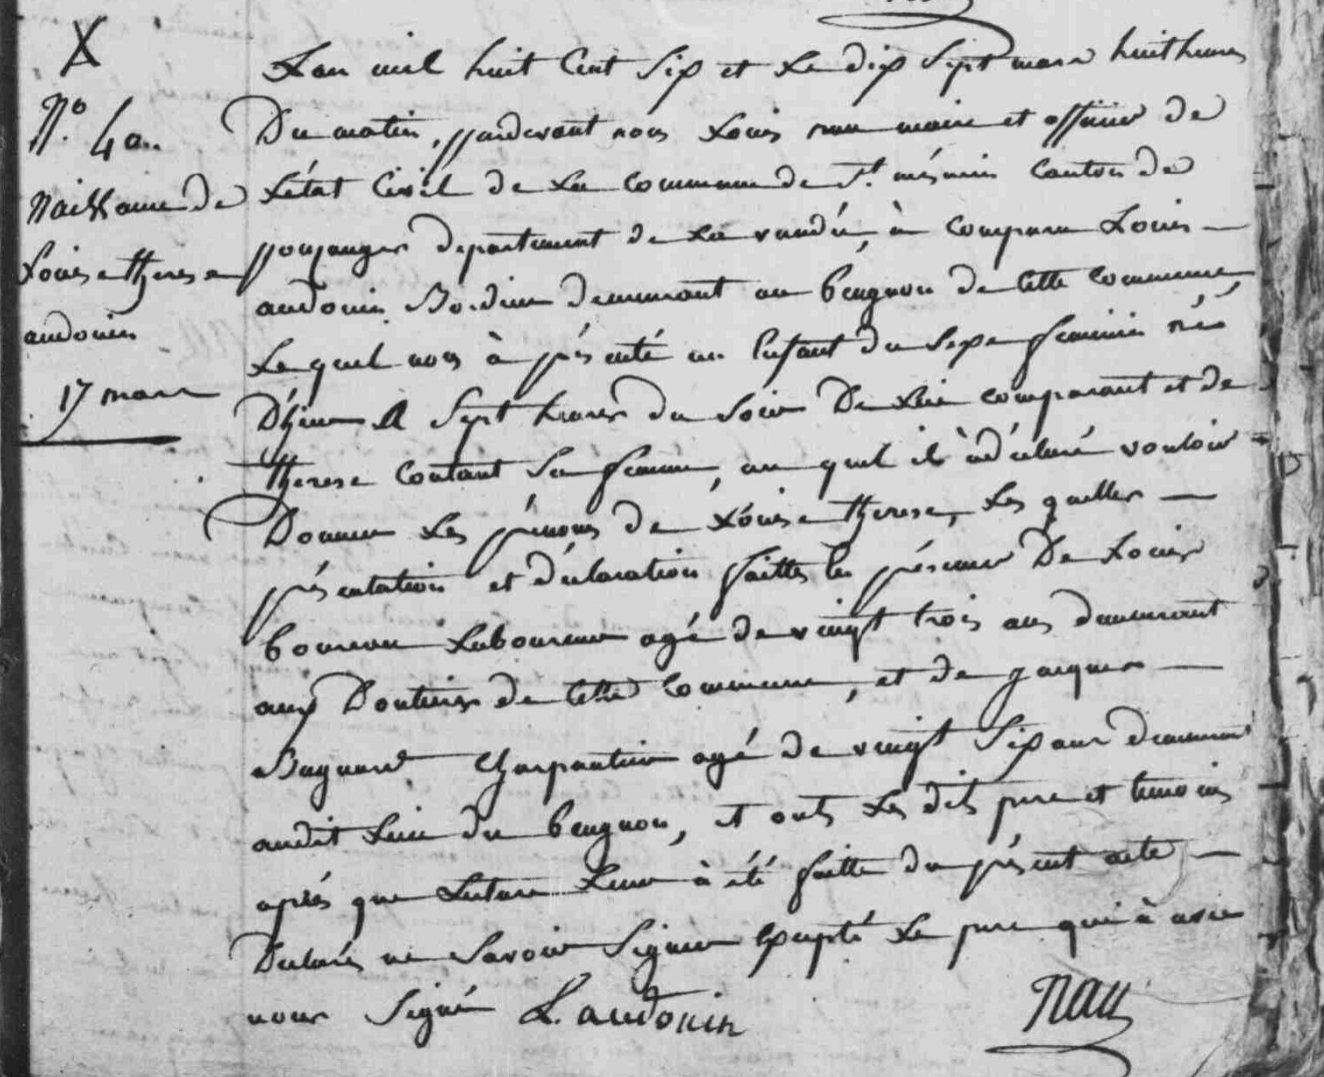 X
N.o 40..
Naissance de
Louise therese
audouin
17 mars
L'an mil huit Cent Six et Le dix Sept mars huit heures
Du matin, pardevant nous Louis nau maire et officier de
L'état Civil de La commune de St. mesmin Canton de
pouzauges departement de La vandée, à comparu Louis —
audouin demeurant au beugnon de Cette commune,
Le quel nous à présenté un Enfant du Sexe feminin née
D'hier A Sept heures du Soir De Lui comparant et de
therese Coutant Sa femme, au quel il à déclaré vouloir
Donner Les prénoms de Louise therese, Les quelles —
présentation et déclaration faittes En présence De Louis
Laboureur agé de vingt trois ans demeurant
aux de Cette commune, et de jacques —
Charpentier agé de vingt Six ans demeurant
audit Lieu du beugnon, et onts Les dits pere et temoins
après que Lecture Leur à été faitte du présent acte —
Déclarés ne Savoir Signer Excepté Le pere qui à avec
nous Signé L. audouin
Nau